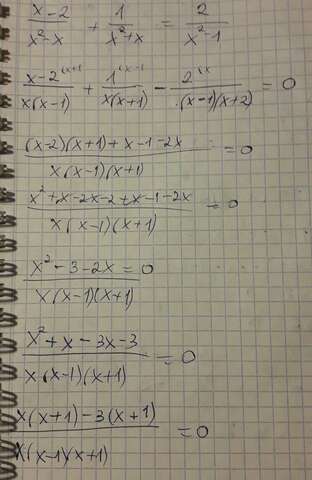 (x-2)/(x²-x) + 1/(x²+x) = 2/(x²-1)
(x-2)^(x+1)/(x(x-1)) + 1^(x-1)/(x(x+1)) - 2^(x)/((x-1)(x+2)) = 0
((x-2)(x+1)+x-1-2x)/(x(x-1)(x+1)) = 0
(x²+x-2x-2+x-1-2x)/(x(x-1)(x+1)) = 0
(x²-3-2x=0)/(x(x-1)(x+1))
(x²+x-3x-3)/(x(x-1)(x+1)) = 0
(x(x+1)-3(x+1))/(x(x-1)(x+1)) = 0